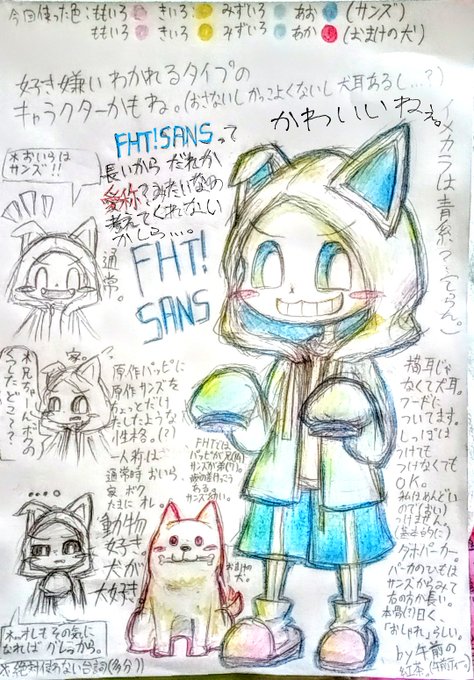 今回使った色:ももいろ きいろ みずいろ あお (サンズ)
ももいろ きいろ みずいろ あか (おまけの犬)
好き嫌いわかれるタイプの
キャラクターかもね。(おさないしかっこよくないし犬耳あるし…?)
かわいいねぇ。
イメカラは青系って
FHT!SANSって
長いからだれか
愛称?みたいなの
考えてくれない
かしら…。
FHT!
SANS
*おいらは
サンズ!!
通常。
家。
*兄ちゃーん ボクの
どこ?
原作パピに
原作サンズを
ちょっとだけ
たしたような
性格。(?)
一人称は
通常時 おいら、
家 ボク
たまに オレ。
動物
好き
犬が
大好き。
…
*オレもその気に
なればグレっから。
※絶対使わない台詞(多分)
FHTでは
パピが兄(?)
サンズが弟(?)
ある。
サンズ幼い。
おまけの
犬。
猫耳じゃ
なくて犬耳。
フードに
ついてます。
しっぽは
つけても
つけなくても
OK。
私はめんどい
ので(おい)
つけません。
パーカー。
パーカーのひもは
サンズから みて
右の方が長い。
本骨(?)曰く、
「おしゃれ」らしい。
by 午前の
紅茶。